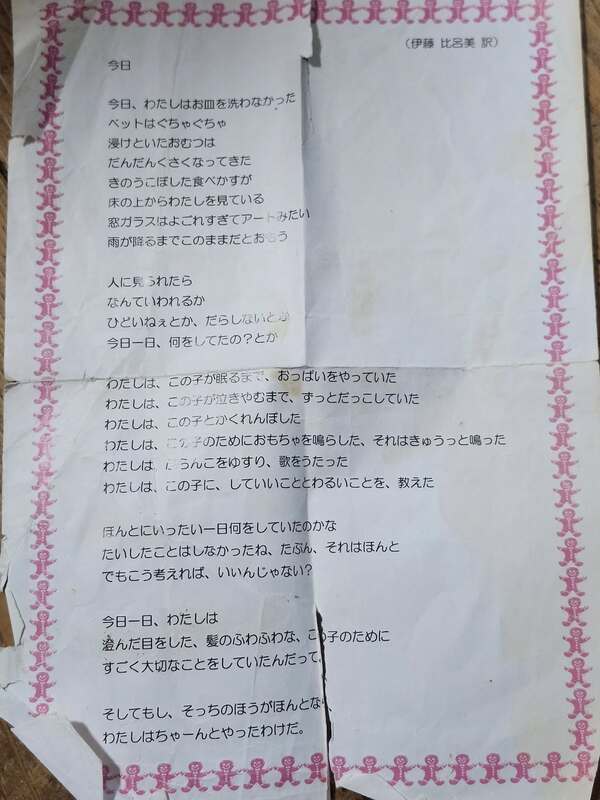 (伊藤 比呂美 訳)
今日
今日、わたしはお皿を洗わなかった
ベットはぐちゃぐちゃ
浸けといたおむつは
だんだんくさくなってきた
きのうこぼした食べかすが
床の上からわたしを見ている
窓ガラスはよごれすぎてアートみたい
雨が降るまでこのままだとおもう
人に見られたら
なんていわれるか
ひどいねぇとか、だらしないとか
今日一日、何をしてたの?とか
わたしは、この子が眠るまで、おっぱいをやっていた
わたしは、この子が泣きやむまで、ずっとだっこしていた
わたしは、この子とかくれんぼした
わたしは、この子のためにおもちゃを鳴らした、それはきゅうっと鳴った
わたしは、ぶらんこをゆすり、歌をうたった
わたしは、この子に、していいこととわるいことを、教えた
ほんとにいったい一日何をしていたのかな
たいしたことはしなかったね、たぶん、それはほんと
でもこう考えれば、いいんじゃない?
今日一日、わたしは
澄んだ目をした、髪のふわふわな、この子のために
すごく大切なことをしていたんだって。
そしてもし、そっちのほうがほんとなら、
わたしはちゃーんとやったわけだ。